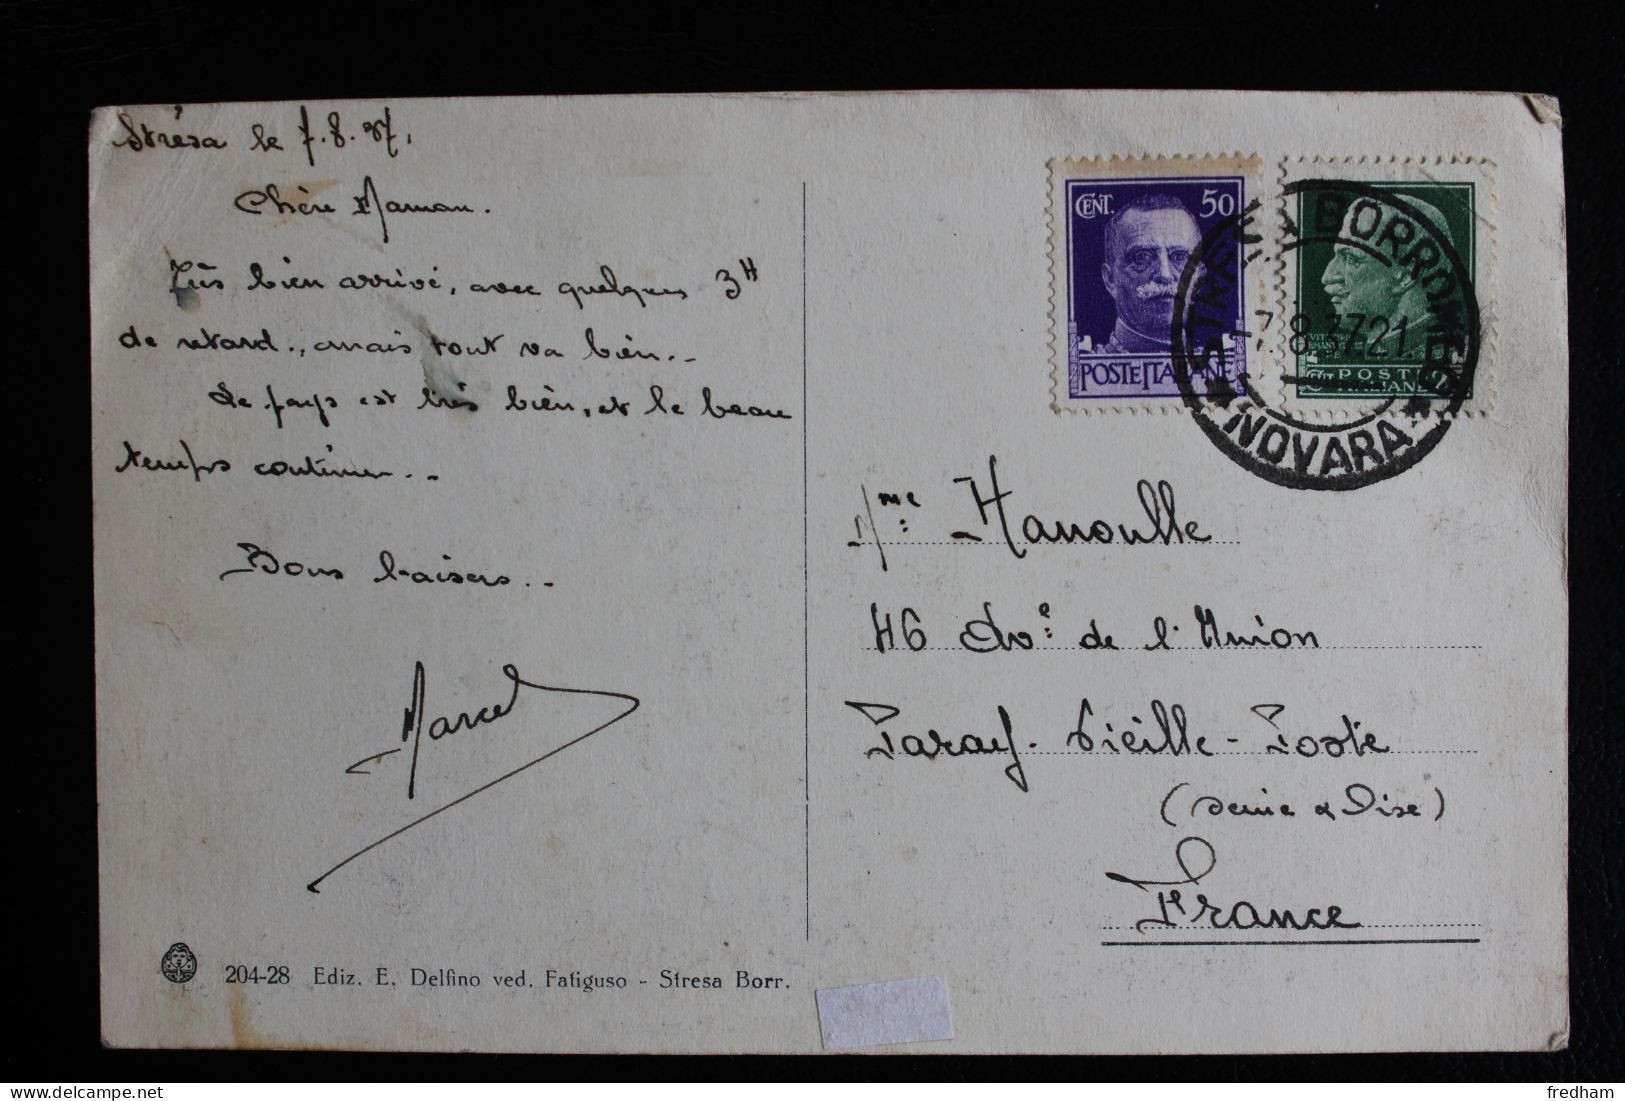 Strésa le 7.8.37.
Chère Maman.
Très bien arrivé, avec quelques 3H
de retard., mais tout va bien..
Le pays est très bien, et le beau
temps continue..
Bons baisers..
Marcel
204-28 Ediz. E. Delfino ved. Fatiguso - Stresa Borr.
CENT. 50
POSTE ITALIANE
POSTE
STRESA BORROMEO
7.8.37.21
* NOVARA *
Mme Hanoulle
46 Ave de l'Union
Paray-Vieille-Poste
(Seine & Oise)
France
delcampe.net
fredham